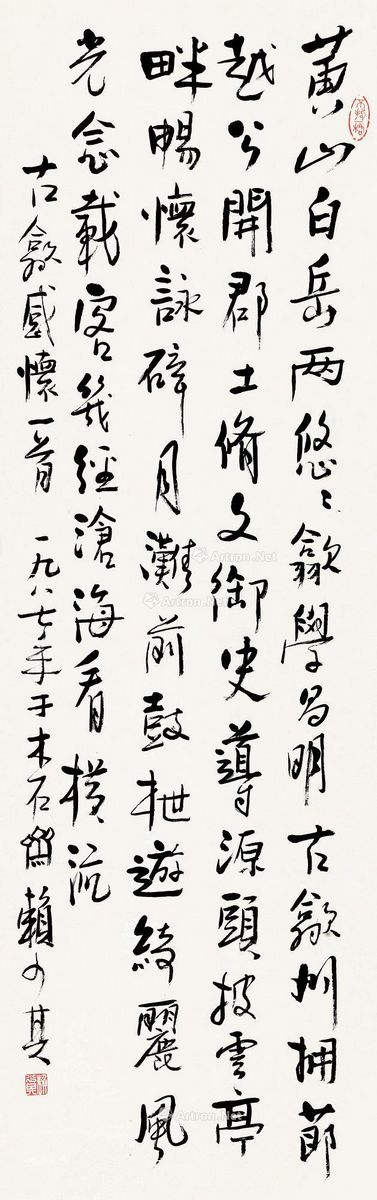 黄山白岳两悠〻歙學昌明古歙州拥節
越公開郡土脩文御史導源頭披雲亭
畔暢懷詠碎月灘前鼓枻遊綺麗風
光念載客幾經滄海看橫流
古歙感懷一首 一九八七年于木石齋賴少其
Artron.Net